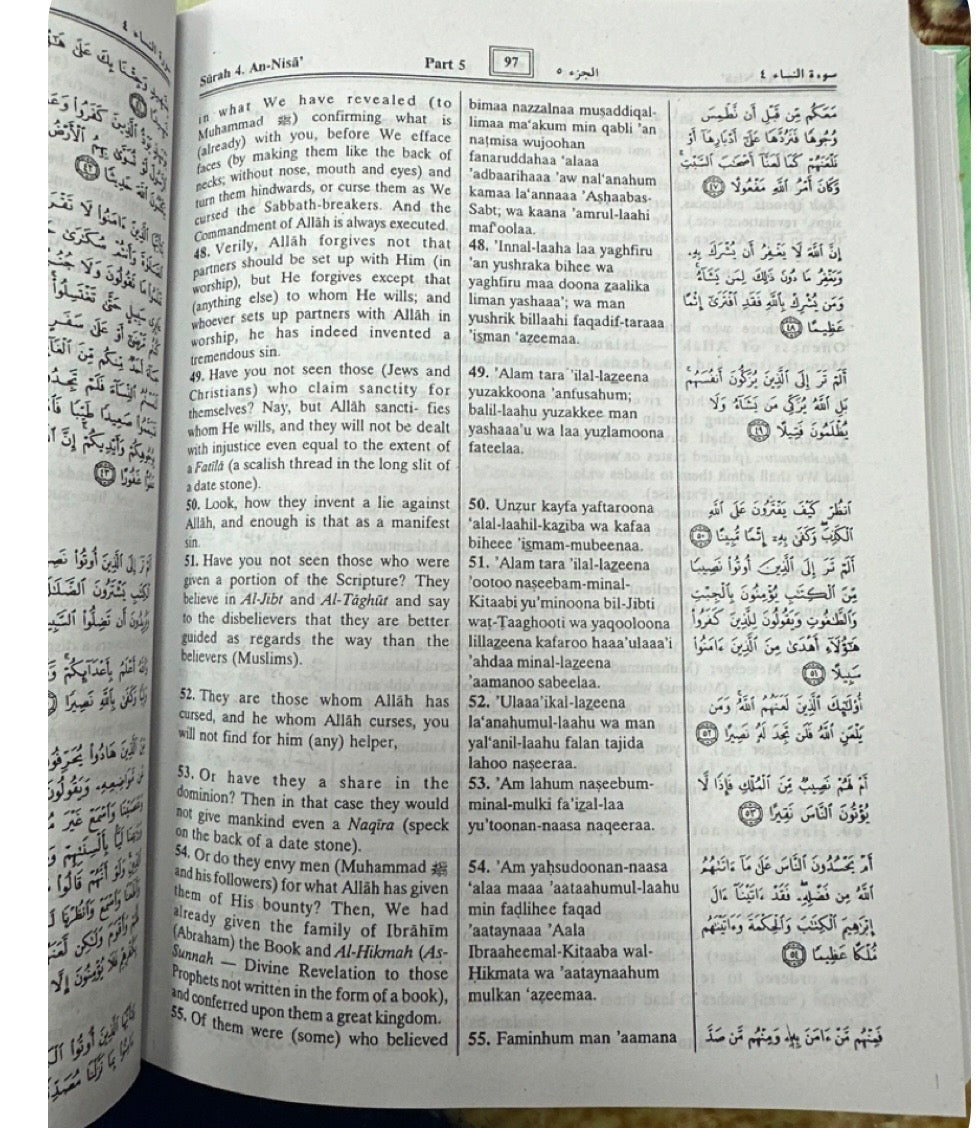 Sūrah 4. An-Nisā' Part 5 97 الجزء ٥ سورة النساء ٤
in what We have revealed (to
Muhammad ﷺ) confirming what is
(already) with you, before We efface
faces (by making them like the back of
necks; without nose, mouth and eyes) and
turn them hindwards, or curse them as We
cursed the Sabbath-breakers. And the
Commandment of Allāh is always executed.
48. Verily, Allāh forgives not that
partners should be set up with Him (in
worship), but He forgives except that
(anything else) to whom He wills; and
whoever sets up partners with Allāh in
worship, he has indeed invented a
tremendous sin.
49. Have you not seen those (Jews and
Christians) who claim sanctity for
themselves? Nay, but Allāh sancti- fies
whom He wills, and they will not be dealt
with injustice even equal to the extent of
a Fatilā (a scalish thread in the long slit of
a date stone).
50. Look, how they invent a lie against
Allāh, and enough is that as a manifest
sin.
51. Have you not seen those who were
given a portion of the Scripture? They
believe in Al-Jibt and Al-Tāghūt and say
to the disbelievers that they are better
guided as regards the way than the
believers (Muslims).
52. They are those whom Allāh has
cursed, and he whom Allāh curses, you
will not find for him (any) helper,
53. Or have they a share in the
dominion? Then in that case they would
not give mankind even a Naqīra (speck
on the back of a date stone).
54. Or do they envy men (Muhammad ﷺ
and his followers) for what Allāh has given
them of His bounty? Then, We had
already given the family of Ibrāhīm
(Abraham) the Book and Al-Hikmah (As-
Sunnah — Divine Revelation to those
Prophets not written in the form of a book),
and conferred upon them a great kingdom.
55. Of them were (some) who believed
bimaa nazzalnaa muṣaddiqal-
limaa ma‘akum min qabli 'an
naṭmisa wujoohan
fanaruddahaa ‘alaaa
'adbaarihaaa 'aw nal‘anahum
kamaa la‘annaaa 'Aṣhaabas-
Sabt; wa kaana 'amrul-laahi
maf‘oolaa.
48. 'Innal-laaha laa yaghfiru
'an yushraka bihee wa
yaghfiru maa doona zaalika
liman yashaaa'; wa man
yushrik billaahi faqadif-taraaa
'isman ‘aẓeemaa.
49. 'Alam tara 'ilal-lazeena
yuzakkoona 'anfusahum;
balil-laahu yuzakkee man
yashaaa'u wa laa yuẓlamoona
fateelaa.
50. Unẓur kayfa yaftaroona
‘alal-laahil-kaziba wa kafaa
biheee 'ismam-mubeenaa.
51. 'Alam tara 'ilal-lazeena
'ootoo naṣeebam-minal-
Kitaabi yu'minoona bil-Jibti
waṭ-Ṭaaghooti wa yaqooloona
lillazeena kafaroo haaa'ulaaa'i
'ahdaa minal-lazeena
'aamanoo sabeelaa.
52. 'Ulaaa'ikal-lazeena
la‘anahumul-laahu wa man
yal‘anil-laahu falan tajida
lahoo naṣeeraa.
53. 'Am lahum naṣeebum-
minal-mulki fa'izal-laa
yu'toonan-naasa naqeeraa.
54. 'Am yaḥsudoonan-naasa
‘alaa maaa 'aataahumul-laahu
min faḍlihee faqad
'aataynaaa 'Aala
Ibraaheemal-Kitaaba wal-
Ḥikmata wa 'aataynaahum
mulkan ‘aẓeemaa.
55. Faminhum man 'aamana
مَعَكُم مِّن قَبْلِ أَن نَّطْمِسَ
وُجُوهًا فَنَرُدَّهَا عَلَىٰ أَدْبَارِهَا أَوْ
نَلْعَنَهُمْ كَمَا لَعَنَّا أَصْحَٰبَ السَّبْتِ ۚ
وَكَانَ أَمْرُ اللَّهِ مَفْعُولًا ٤٧
إِنَّ اللَّهَ لَا يَغْفِرُ أَن يُشْرَكَ بِهِۦ
وَيَغْفِرُ مَا دُونَ ذَٰلِكَ لِمَن يَشَآءُ ۚ
وَمَن يُشْرِكْ بِاللَّهِ فَقَدِ افْتَرَىٰٓ إِثْمًا
عَظِيمًا ٤٨
أَلَمْ تَرَ إِلَى الَّذِينَ يُزَكُّونَ أَنفُسَهُم ۚ
بَلِ اللَّهُ يُزَكِّى مَن يَشَآءُ وَلَا
يُظْلَمُونَ فَتِيلًا ٤٩
انظُرْ كَيْفَ يَفْتَرُونَ عَلَى اللَّهِ
الْكَذِبَ ۖ وَكَفَىٰ بِهِۦٓ إِثْمًا مُّبِينًا ٥٠
أَلَمْ تَرَ إِلَى الَّذِينَ أُوتُوا نَصِيبًا
مِّنَ الْكِتَٰبِ يُؤْمِنُونَ بِالْجِبْتِ
وَالطَّٰغُوتِ وَيَقُولُونَ لِلَّذِينَ كَفَرُوا
هَٰٓؤُلَآءِ أَهْدَىٰ مِنَ الَّذِينَ ءَامَنُوا
سَبِيلًا ٥١
أُو۟لَٰٓئِكَ الَّذِينَ لَعَنَهُمُ اللَّهُ ۖ وَمَن
يَلْعَنِ اللَّهُ فَلَن تَجِدَ لَهُۥ نَصِيرًا ٥٢
أَمْ لَهُمْ نَصِيبٌ مِّنَ الْمُلْكِ فَإِذًا لَّا
يُؤْتُونَ النَّاسَ نَقِيرًا ٥٣
أَمْ يَحْسُدُونَ النَّاسَ عَلَىٰ مَآ ءَاتَىٰهُمُ
اللَّهُ مِن فَضْلِهِۦ ۖ فَقَدْ ءَاتَيْنَآ ءَالَ
إِبْرَٰهِيمَ الْكِتَٰبَ وَالْحِكْمَةَ وَءَاتَيْنَٰهُم
مُّلْكًا عَظِيمًا ٥٤
فَمِنْهُم مَّنْ ءَامَنَ بِهِۦ وَمِنْهُم مَّن صَدَّ